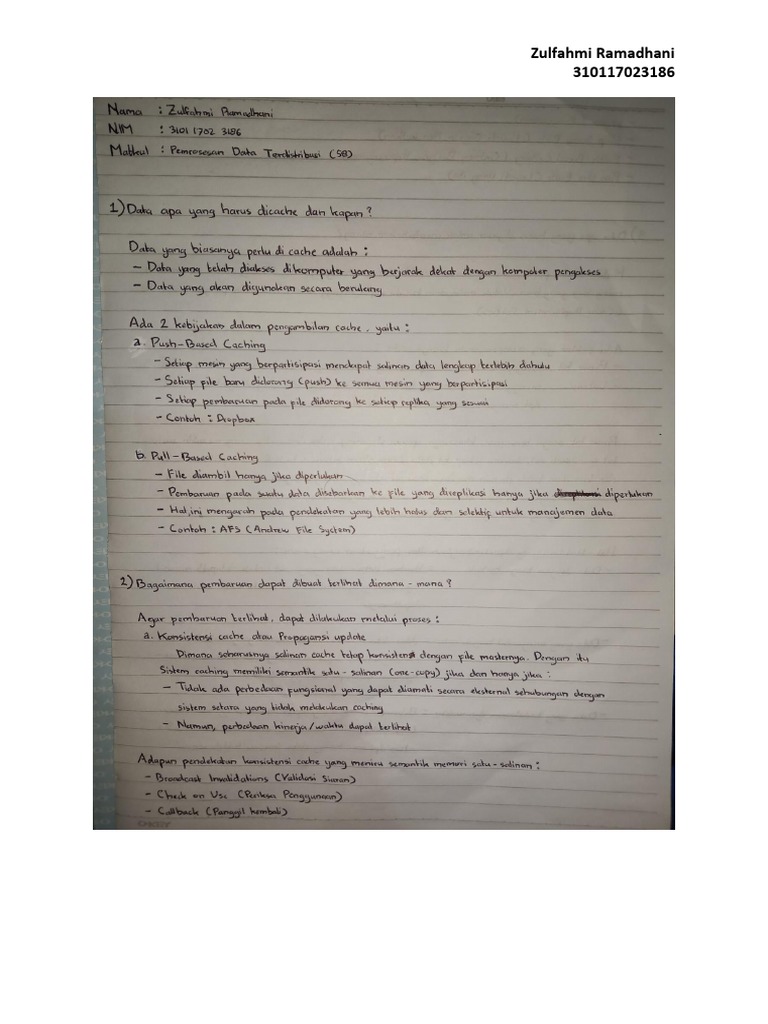 Zulfahmi Ramadhani
310117023186
Nama : Zulfahmi Ramadhani
NIM : 3101 1702 3186
Matkul : Pemrosesan Data Terdistribusi (5B)
1) Data apa yang harus dicache dan kapan ?
Data yang biasanya perlu di cache adalah :
- Data yang telah diakses dikomputer yang berjarak dekat dengan komputer pengakses
- Data yang akan digunakan secara berulang
Ada 2 kebijakan dalam pengambilan cache, yaitu :
a. Push-Based Caching
- Setiap mesin yang berpartisipasi mendapat salinan data lengkap terlebih dahulu
- Setiap file baru didorong (push) ke semua mesin yang berpartisipasi
- Setiap pembaruan pada file didorong ke setiap replika yang sesuai
- Contoh : Dropbox
b. Pull-Based Caching
- File diambil hanya jika diperlukan
- Pembaruan pada suatu data disebarkan ke file yang direplikasi hanya jika diperlukan
- Hal ini mengarah pada pendekatan yang lebih halus dan selektif untuk manajemen data
- Contoh : AFS (Andrew File System)
2) Bagaimana pembaruan dapat dibuat terlihat dimana-mana ?
Agar pembaruan terlihat, dapat dilakukan melalui proses :
a. Konsistensi cache atau Propagansi update
Dimana seharusnya salinan cache tetap konsisten dengan file masternya. Dengan itu
Sistem caching memiliki semantik satu-salinan (one-cupy) jika dan hanya jika :
- Tidak ada perbedaan fungsional yang dapat diamati secara eksternal sehubungan dengan
sistem setara yang tidak melakukan caching
- Namun, perbedaan kinerja/waktu dapat terlihat
Adapun pendekatan konsistensi cache yang meniru semantik memori satu-salinan :
- Broadcast Invalidations (Validasi Siaran)
- Check on Use (Periksa Penggunaan)
- Callback (Panggil kembali)